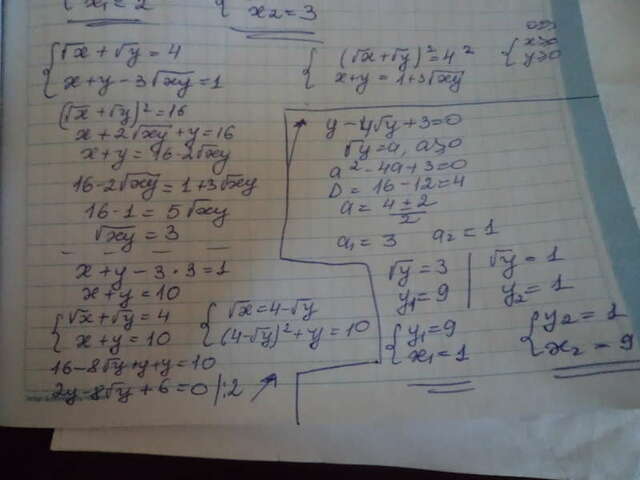 x₁=2
x₂=3
{ √x+√y=4
x+y-3√xy=1
{ (√x+√y)²=4²
x+y=1+3√xy
{ ОДЗ
x≥0
y≥0
(√x+√y)²=16
x+2√xy+y=16
x+y=16-2√xy
16-2√xy=1+3√xy
16-1=5√xy
√xy=3
x+y-3·3=1
x+y=10
{ √x+√y=4
x+y=10
{ √x=4-√y
(4-√y)²+y=10
16-8√y+y+y=10
2y-8√y+6=0 |:2
y-4√y+3=0
√y=a, a≥0
a²-4a+3=0
D=16-12=4
a=4±2/2
a₁=3 a₂=1
√y=3 | √y=1
y₁=9 y₂=1
{ y₁=9
x₁=1
{ y₂=1
x₂=9